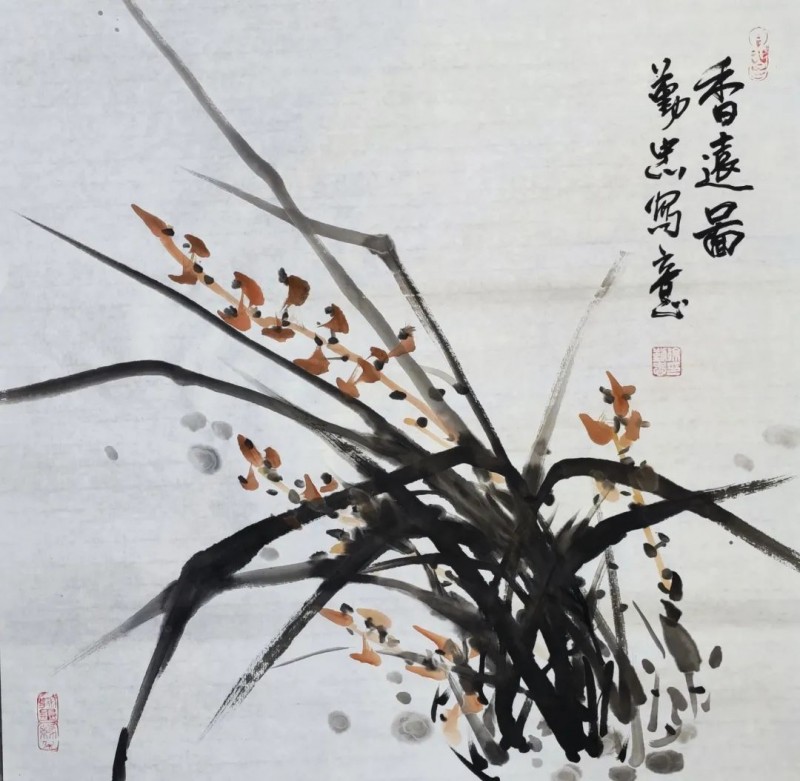 香遠圖
勤忠寫意